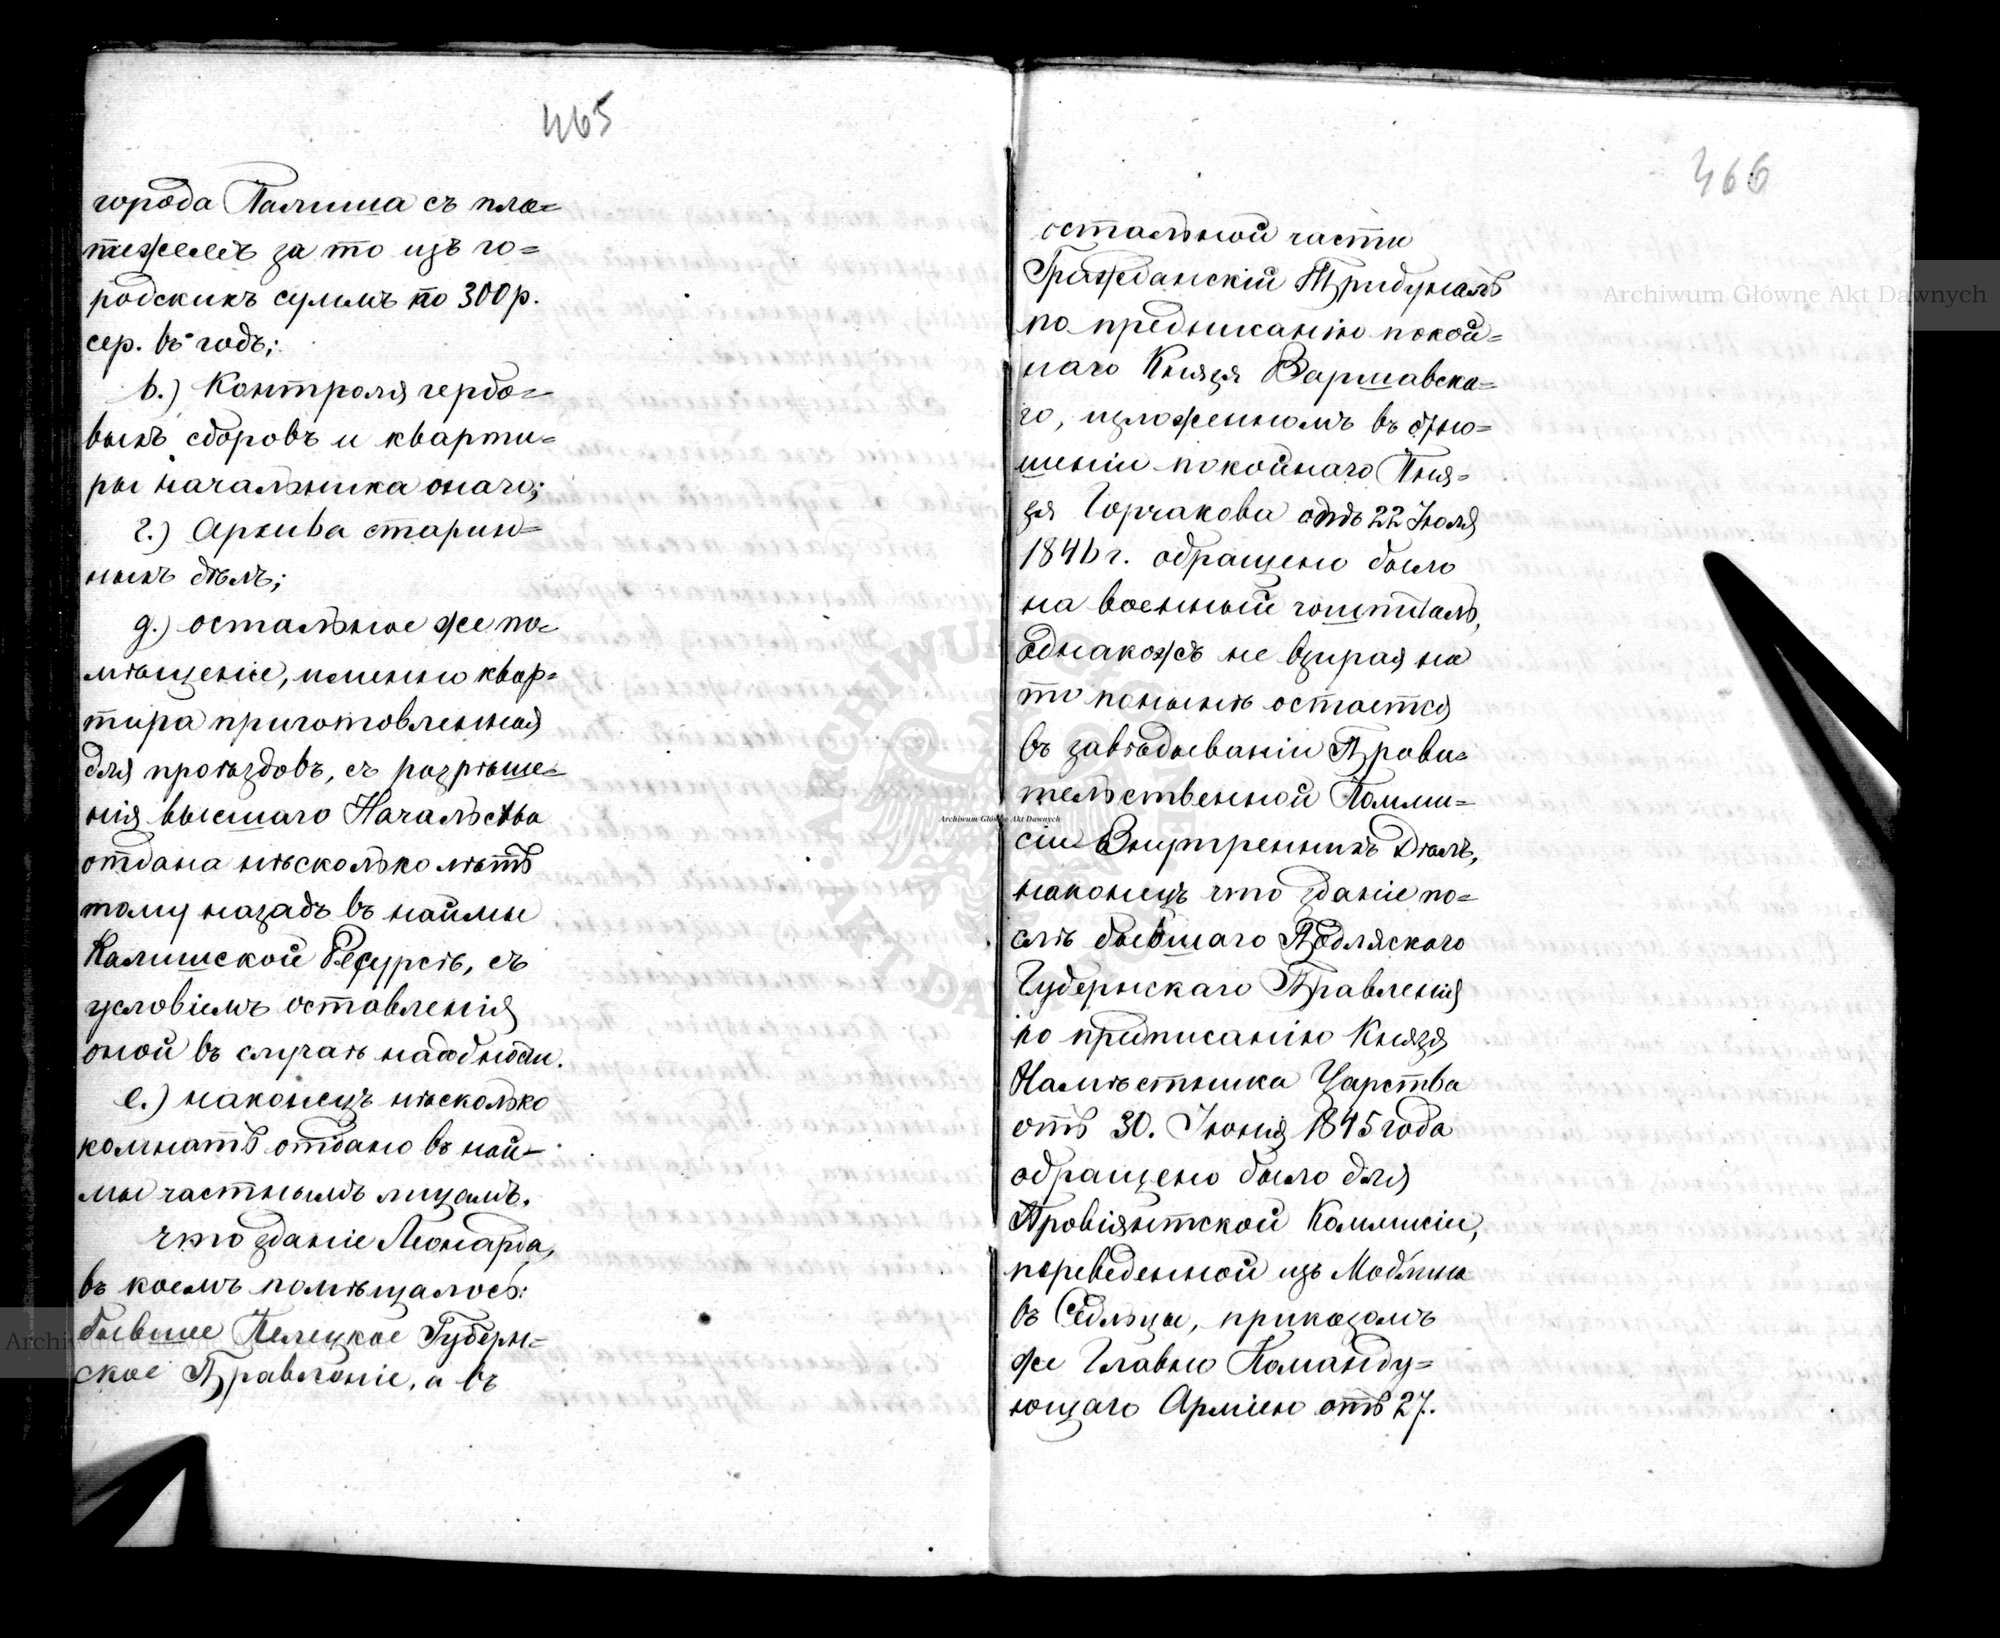 465
города Калиша съ пла=
тежемъ за то изъ го=
родскихъ суммъ по 300 р.
сер. въ годъ;
в.) Контроля гербо=
выхъ сборовъ и кварти=
ры начальника онаго;
г.) Архива старин=
ныхъ дѣлъ;
д.) остальное же по=
мѣщеніе, именно квар=
тира приготовленная
для проѣздовъ, съ разрѣше=
нія высшаго Начальства
отдана нѣсколько лѣтъ
тому назадъ въ наймы
Калишской Ресурсѣ, съ
условіемъ оставленія
оной въ случаѣ надобности.
е.) наконецъ нѣсколько
комнатъ отдано въ най=
мы частнымъ лицамъ.
что зданіе Леонарда,
въ коемъ помѣщалось
бывшее Келецкое Губерн=
ское Правленіе, а въ
466
остальной части
Гражданскій Трибуналъ
по предписанію покой=
наго Князя Варшавска=
го, изложенномъ въ отно=
шеніи покойнаго Кня=
зя Горчакова отъ 22 Іюля
1846 г. обращено было
на военный гошпиталь,
однакожъ не взирая на
то понынѣ остается
въ завѣдываніи Прави=
тельственной Коммис=
сіи Внутреннихъ Дѣлъ,
наконецъ что зданіе по=
слѣ бывшаго Подляскаго
Губернскаго Правленія
по приписанію Князя
Намѣстника Царства
отъ 30. Іюня 1845 года
обращено было для
Провіянтской Коммисіи,
переведенной изъ Модлина
въ Седльцы, приказомъ
же Главно Команду=
ющаго Арміею отъ 27.
Archiwum Główne Akt Dawnych
Archiwum Główne Akt Dawnych
Archiwum Główne Akt Dawnych